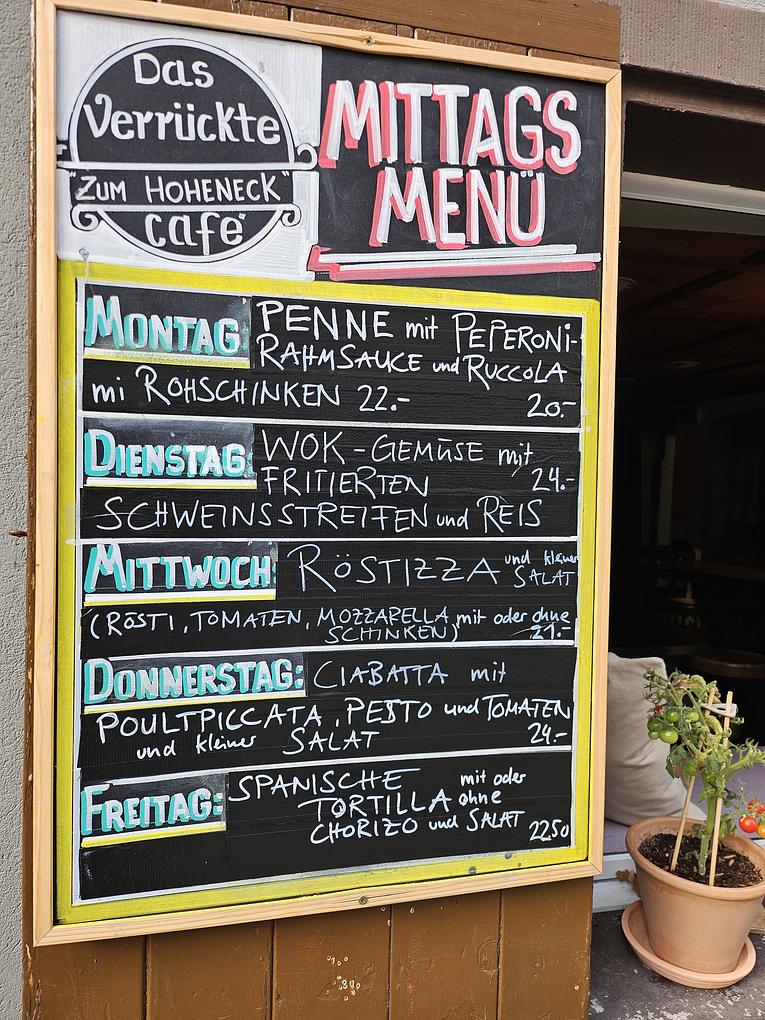 Das
Verrückte
"ZUM HOHENECK"
café
MITTAGS
MENÜ
MONTAG: PENNE mit PEPERONI-
RAHMSAUCE und RUCCOLA
mi ROHSCHINKEN 22.- 20.-
DIENSTAG: WOK-GEMÜSE mit
FRITIERTEN 24.-
SCHWEINSSTREIFEN und REIS
MITTWOCH: RÖSTIZZA und kleiner
SALAT
(RÖSTI, TOMATEN, MOZZARELLA, mit oder ohne
SCHINKEN) 21.-
DONNERSTAG: CIABATTA mit
POULTPICCATA, PESTO und TOMATEN
und kleiner SALAT 24.-
FREITAG: SPANISCHE mit oder
TORTILLA ohne
CHORIZO und SALAT 22.50